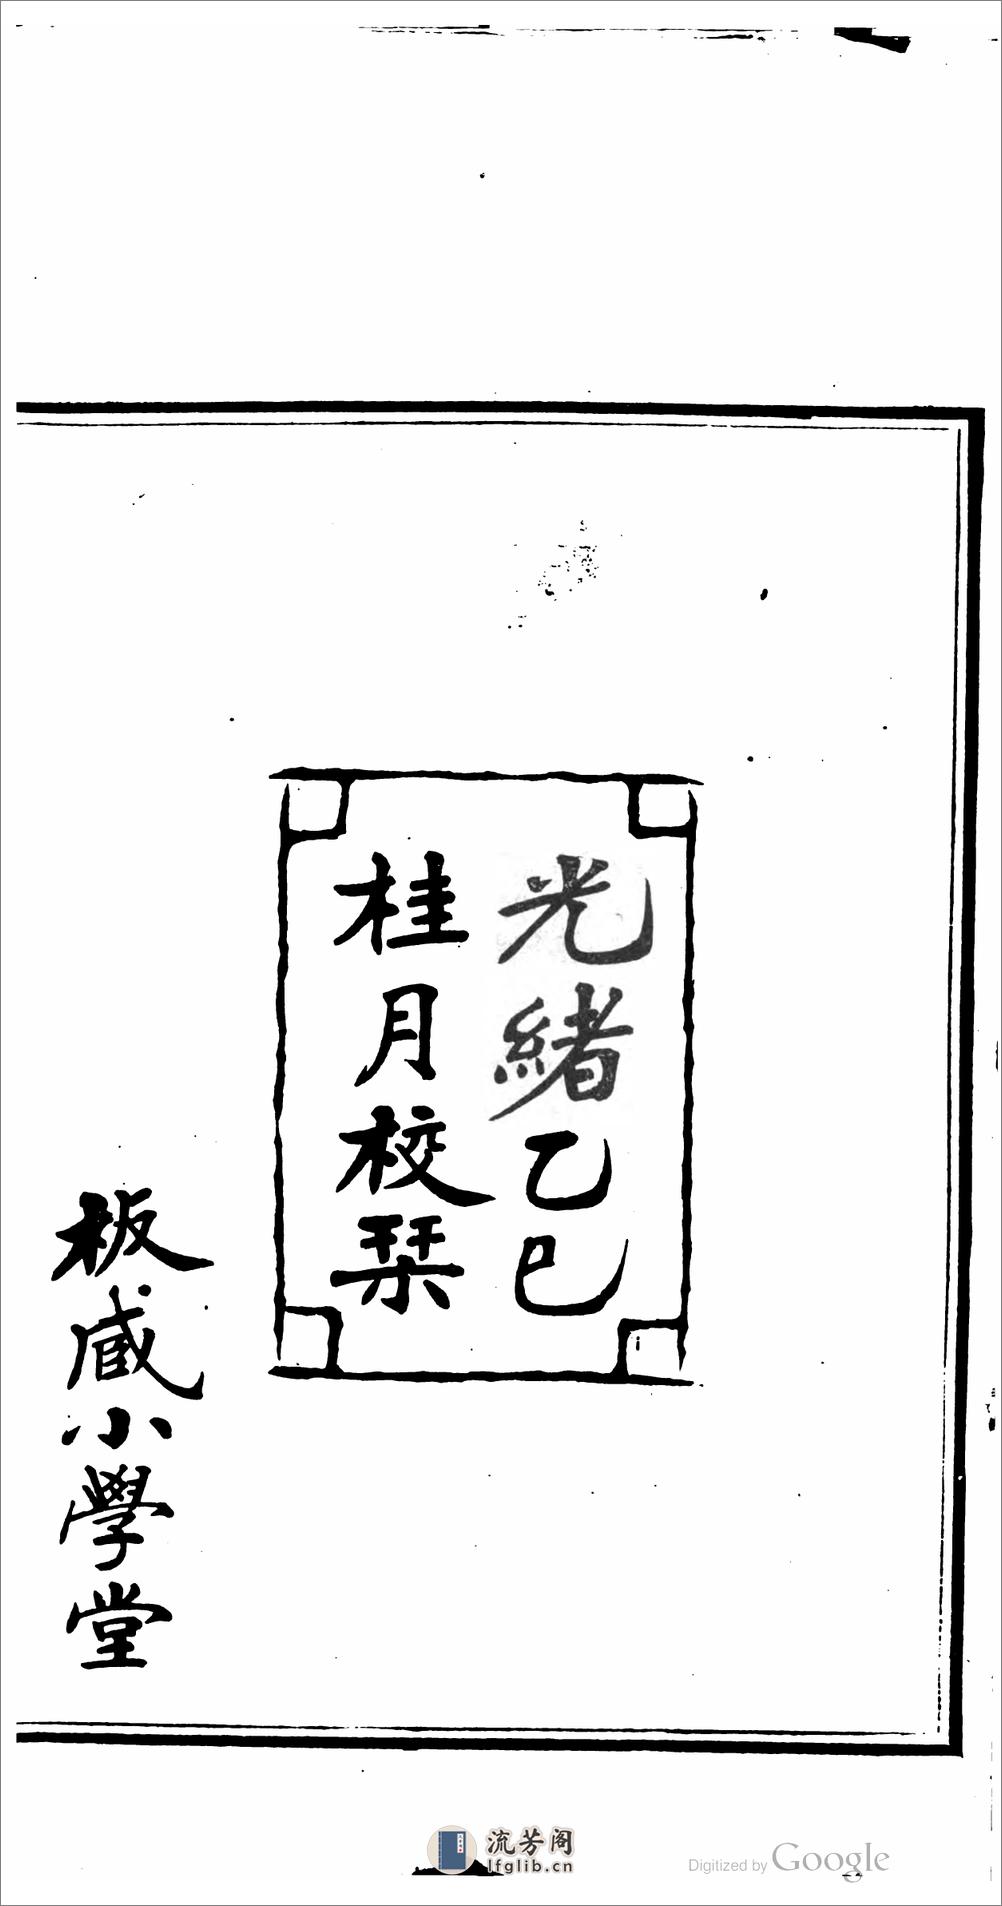 光緒乙巳
桂月校栞
板藏小學堂
流芳阁
lfglib.cn
Digitized by Google